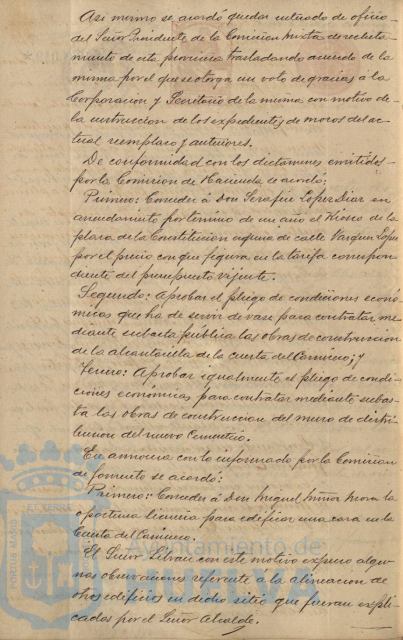 Asi mismo se acordó quedar enterado de oficio
del Señor Presidente de la Comision mixta de recluta-
miento de esta provincia trasladando acuerdo de la
misma por el que se otorga un voto de gracias á la
Corporacion y Secretario de la misma con motivo de
la instruccion de los expedientes de mozos del ac-
tual reemplazo y anteriores.
De conformidad con los dictamenes emitidos
por la Comision de Hacienda se acordó:
Primero: Conceder á Don Serafin Lopez Diaz en
arrendamiento por termino de un año el Kiosco de la
plaza de la Constitucion esquina de calle Vazquez Lopez
por el precio con que figura en la tarifa correspon-
diente del presupuesto vijente.
Segundo: Aprobar el pliego de condiciones econó-
micas que ha de servir de vase para contratar me-
diante subasta pública las obras de construccion
de la alcantarilla de la cuesta del Carnicero; y
Tercero: Aprobar igualmente el pliego de condi-
ciones economicas para contratar mediante subas-
ta las obras de construccion del muro de distri-
bucion del nuevo Cementerio.
En armonia con lo informado por la Comision
de fomento se acordó:
Primero: Conceder á Don Miguel Muñoz Mora la
oportuna licencia para edificar una casa en la
Cuesta del Carnicero.
El Señor con este motivo expuso algu-
nas observaciones referente á la alineacion de
otros edificios en dicho sitio que fueron expli-
cadas por el Señor Alcalde.
Ayuntamiento de
HUELVA
PORTUS MARIS
ET TERRÆ